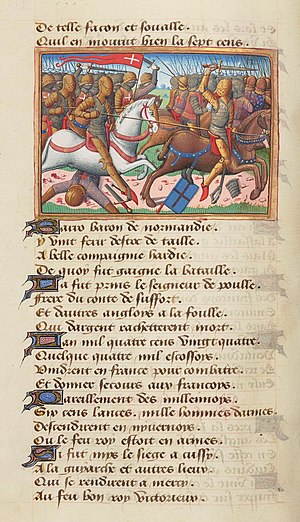 De telle facon et foualle.
Quil en mourut bien la sept cens.
Auro baron de normandie.
Y vint ferir destoc de taille.
A belle compaignie hardie.
De quoy fut gaigne la bataille.
La fut prins le seigneur de poulle.
Frere du conte de suffort.
Et dautres anglois a la foulle.
Qui dargent rachetterent mort.
Lan mil quatre cens vingt quatre.
Quelque quatre mil escossoys.
Vindrent en france pour combatre.
Et donner secours aux francoys.
Pareillement des millennoys.
Six cens lances. mille hommes darmes
Descendirent en nyvernoys.
Ou le feu roy estoit en armes.
Si fut mys le siege a cussy.
A la guyarche et autres lieux.
Qui se rendirent a mercy.
Au feu bon roy victorieux.